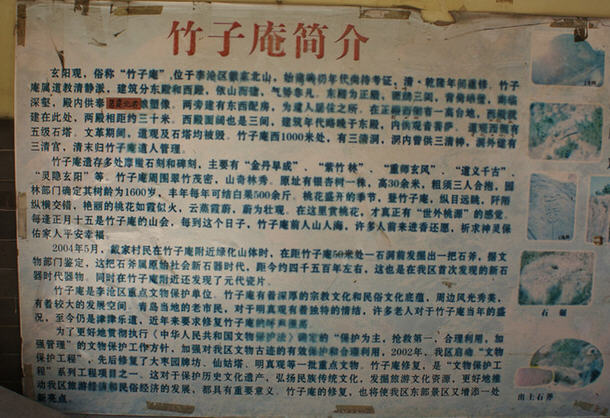 竹子庵简介
玄阳观，俗称“竹子庵”，位于李沧区戴家北山，始建确切年代尚待考证，清·乾隆年间重修。竹子
庵属道教清静派，建筑分东殿和西殿，依山而建，气势非凡。东殿为正殿，面阔三间，背倚峭壁，南临
深壑，殿内供奉 塑像。两旁建有东西配房，为道人居住之所。在正殿西侧有一高台地，西殿就
建在此处，两殿相距约三十米。西殿面阔也是三间，建筑年代略晚于东殿，内供观音菩萨。道观西侧有
五级石塔。文革期间，道观及石塔均被毁。竹子庵西1000米处，有三清洞，洞内曾供三清神，洞外建有
三清宫，清末归竹子庵道人管理。
竹子庵遗存多处摩崖石刻和碑刻，主要有“金丹早成”、“紫竹林”、“重师玄风”、“道义千古”、
“灵隐玄阳”等。竹子庵周围翠竹茂密，山奇林秀。原址有银杏树一株，高30余米，粗须三人合抱，园
林部门确定其树龄为1600岁，丰年每年可结白果500余斤。桃花盛开的季节，登竹子庵，纵目远眺，阡陌
纵横交错，艳丽的桃花如霞似火，云蒸霞蔚，蔚为壮观。在这里赏桃花，才真正有“世外桃源”的感觉。
每逢正月十五是竹子庵的山会，每到这个日子，竹子庵前人山人海，许多人前来进香还愿，祈求神灵保
佑家人平安幸福。
2004年5月，戴家村民在竹子庵附近绿化山体时，在距竹子庵50米处一石洞前发掘出一把石斧，据文
物部门鉴定，这把石斧属原始社会新石器时代，距今约四千五百年左右，这也是在我区首次发现的新石
器时代器物。同时在竹子庵附近还发现了元代瓷片。
竹子庵是李沧区重点文物保护单位。竹子庵有着深厚的宗教文化和民俗文化底蕴，周边风光秀美，
有着较大的发展空间。青岛当地的老市民，对于明真观有着独特的情结，许多老人对于竹子庵当年的盛
况，至今仍是津津乐道，近年来要求修复竹子庵的呼声很高。
为了更好地贯彻执行《中华人民共和国文物保护法》确定的“保护为主，抢救第一，合理利用，加
强管理”的文物保护工作方针，加强对我区文物古迹的有效保护和合理利用，2002年，我区启动“文物
保护工程”，先后修复了大枣园牌坊、仙姑塔、明真观等一批重点文物。竹子庵修复，是“文物保护工
程”系列工程项目之一。这对于保护历史文化遗产，弘扬民族传统文化，发掘旅游文化资源，更好地推
动我区旅游经济和民俗经济的发展，都具有重要意义。竹子庵的修复，也将使我区东部景区又增添一处
新亮点。
出土石斧